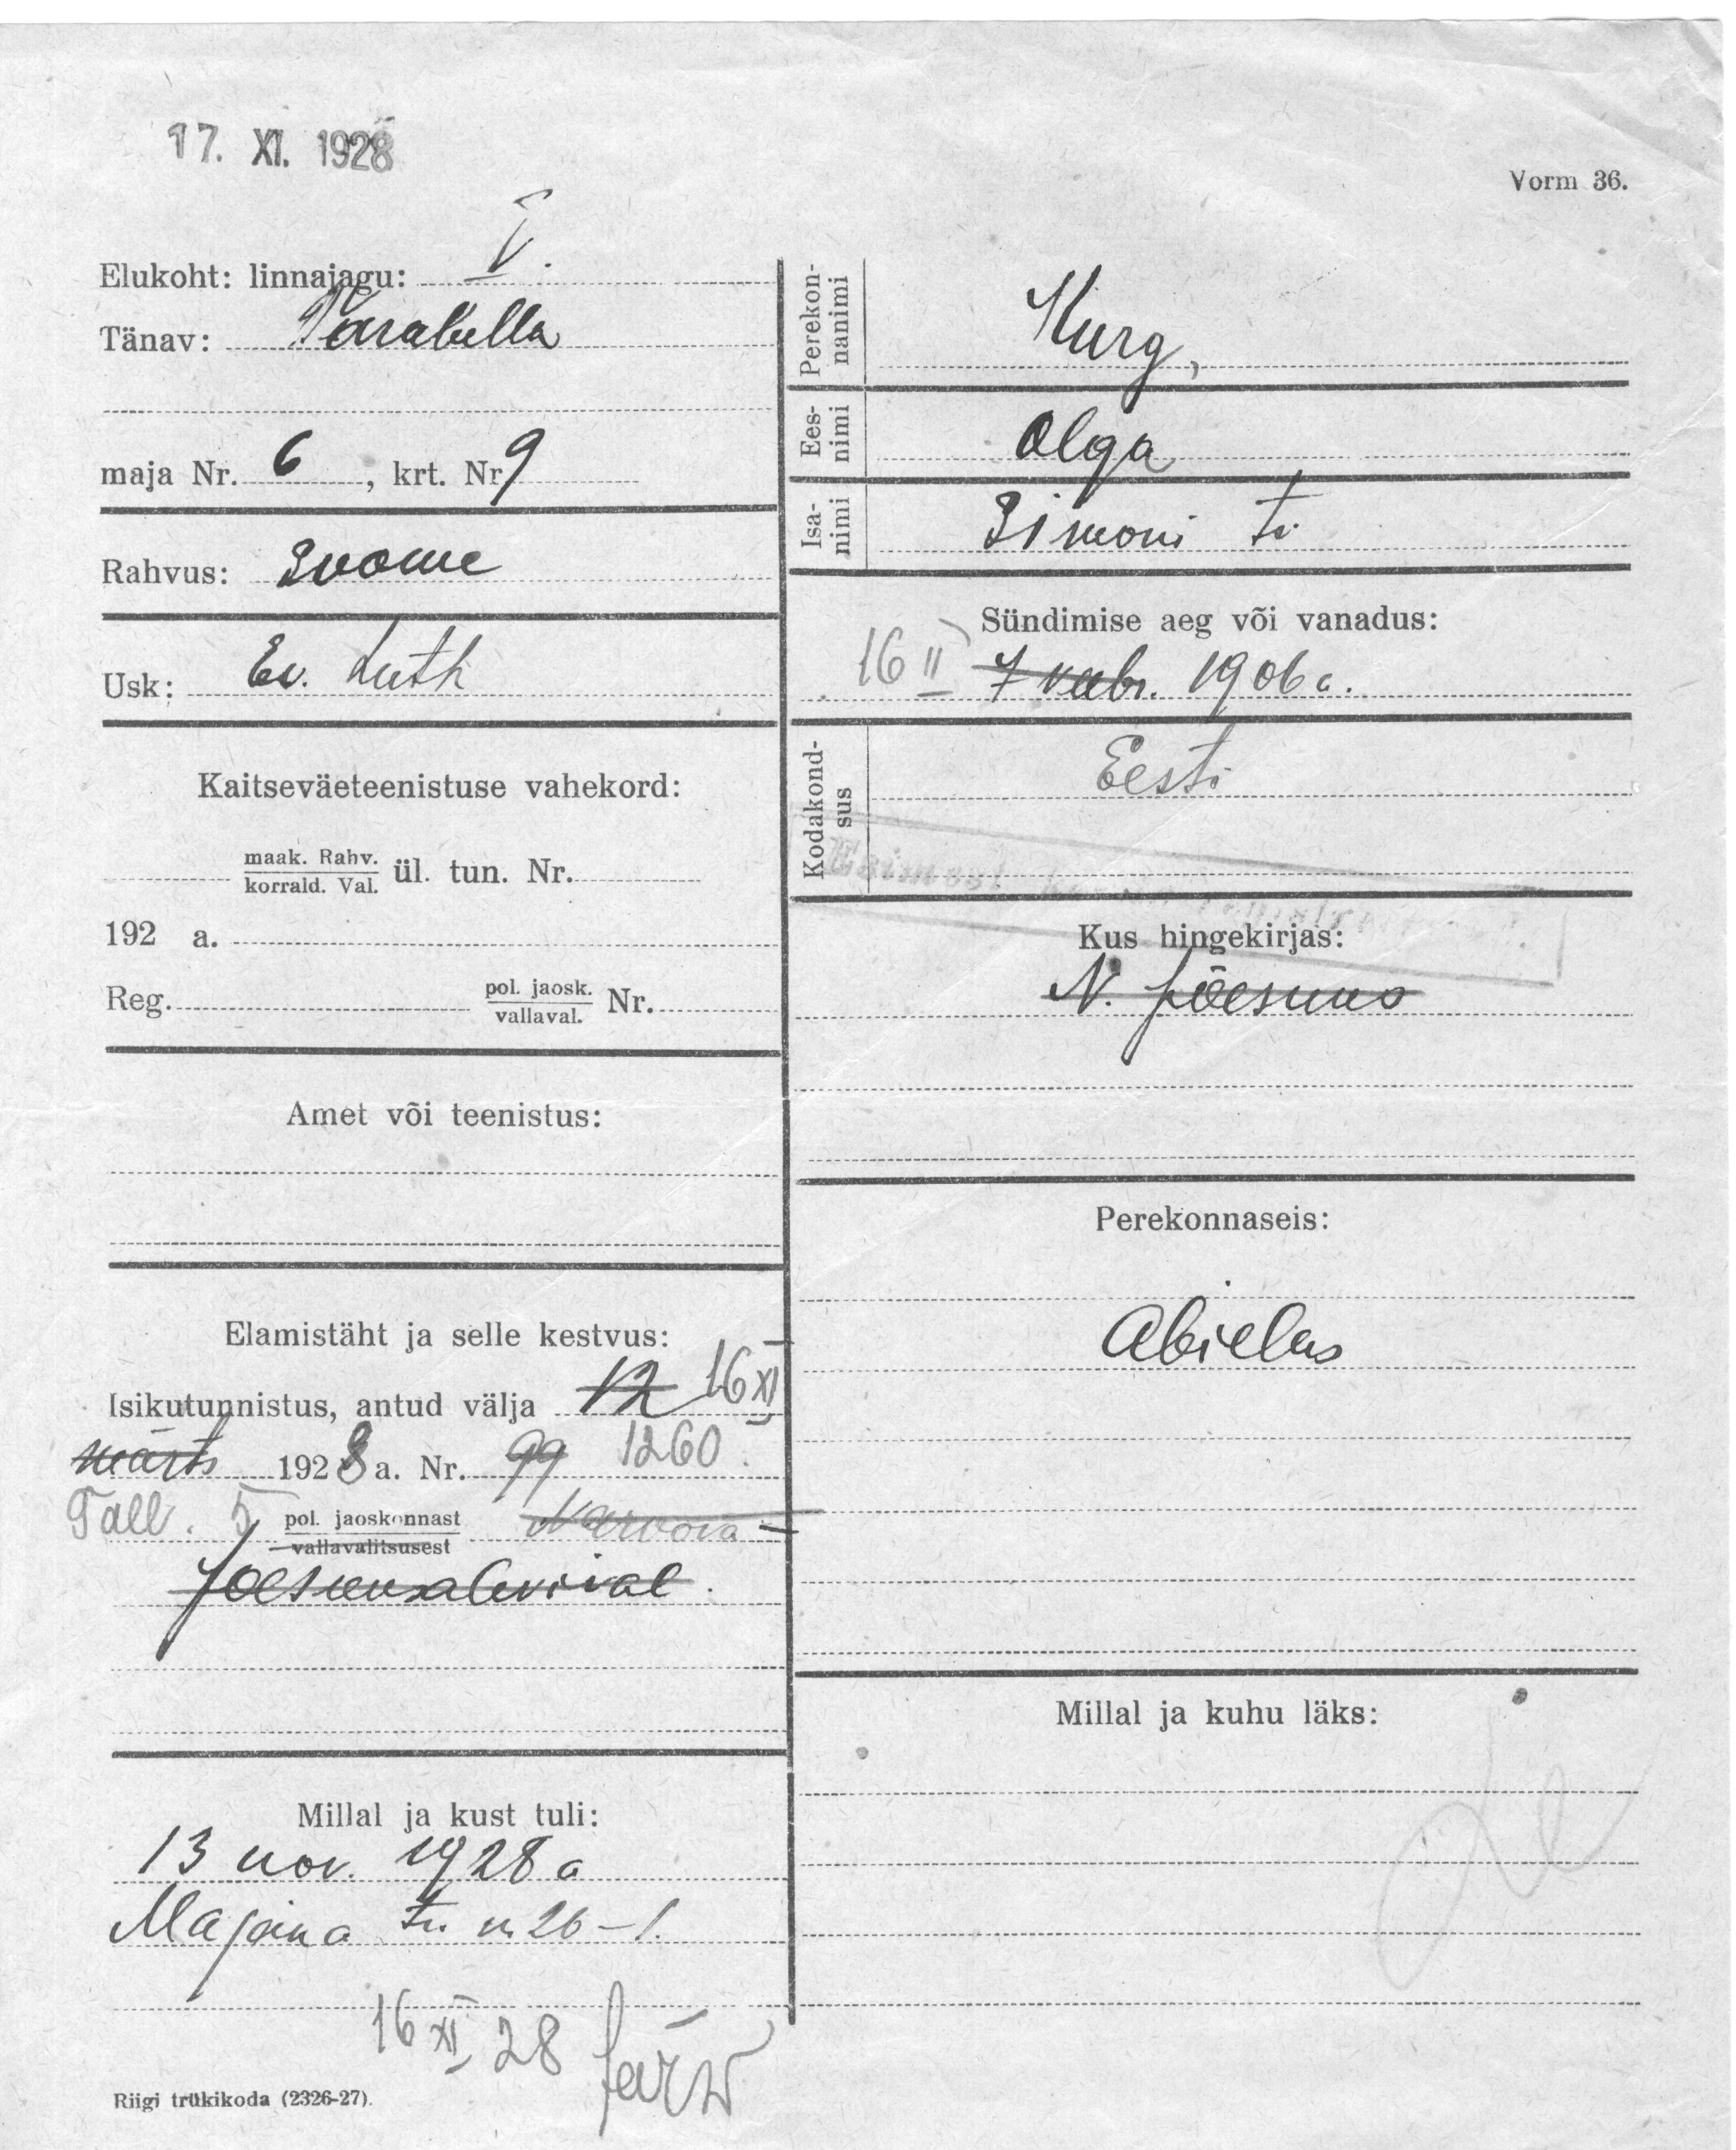 17. XI. 1928
Vorm 36.
Elukoht: linnajagu: V.
Tänav: Parabella
maja Nr. 6, krt. Nr 9
Rahvus: Suome
Usk: Ev. Luth
Kaitseväeteenistuse vahekord:
maak. Rahv.
korrald. Val. ül. tun. Nr.
192 a.
Reg. pol. jaosk.
vallaval. Nr.
Amet või teenistus:
Elamistäht ja selle kestvus:
Isikutunnistus, antud välja 12 16 XI
märts 1928 a. Nr. 99 1260
Tall. 5 pol. jaoskonnast Narvova
vallavalitsusest
Jõesuu alevival.
Millal ja kust tuli:
13 nov. 1928 a
Majaka tn. n 26-1.
16 XI 28
Riigi trükikoda (2326-27).
Perekon-
nanimi
Kurg,
Ees-
nimi
Olga
Isa-
nimi
Simoni t.
Sündimise aeg või vanadus:
16 II 7 veebr. 1906 a.
Kodakond-
sus
Eesti
Kus hingekirjas:
N. Jõesuus
Perekonnaseis:
Abielus
Millal ja kuhu läks: